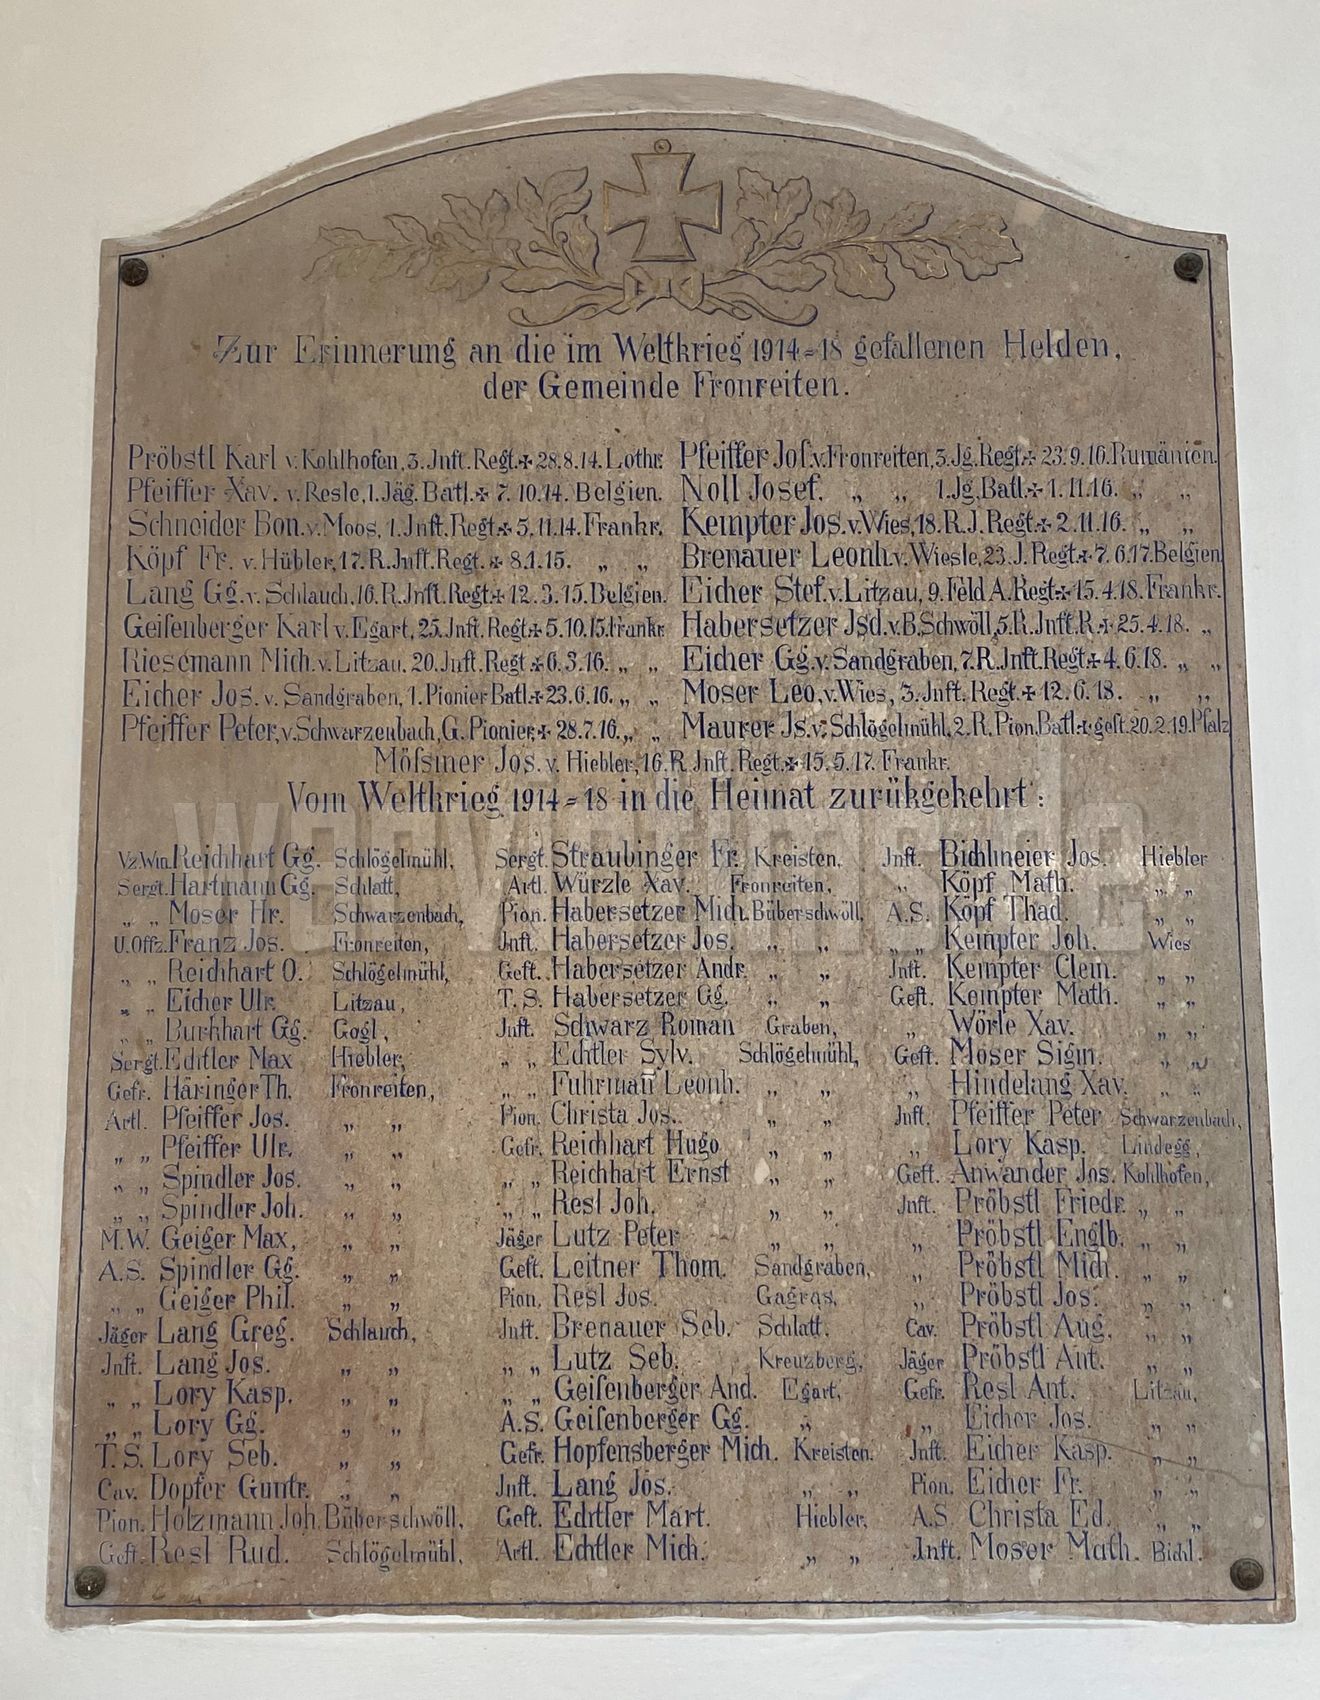 Zur Erinnerung an die im Weltkrieg 1914=18 gefallenen Helden,
der Gemeinde Fronreiten.
Pröbstl Karl v. Kohlhofen, 3. Jnft. Regt. ✠ 28.8.14. Lothr.
Pfeiffer Xav. v. Resle, 1. Jäg. Batl. ✠ 7.10.14. Belgien.
Schneider Bon. v. Moos, 1. Jnft. Regt. ✠ 5.11.14. Frankr.
Köpf Fr. v. Hübler, 17. R. Jnft. Regt. ✠ 8.1.15. „ „
Lang Gg. v. Schlauch, 16. R. Jnft. Regt. ✠ 12.3.15. Belgien.
Geisenberger Karl v. Egart, 25. Jnft. Regt. ✠ 5.10.15. Frankr.
Riesemann Mich. v. Litzau, 20. Jnft. Regt ✠ 6.3.16. „ „
Eicher Jos. v. Sandgraben, 1. Pionier Batl. ✠ 23.6.16. „ „
Pfeiffer Peter, v. Schwarzenbach, G. Pionier ✠ 28.7.16. „ „
Pfeiffer Jos. v. Fronreiten, 3. Jg. Regt. ✠ 23.9.16. Rumänien.
Noll Josef. „ „ 1. Jg. Batl. ✠ 1.11.16. „ „
Kempter Jos. v. Wies, 18. R. J. Regt. ✠ 2.11.16. „ „
Brenauer Leonh. v. Wiesle, 23. J. Regt. ✠ 7.6.17. Belgien
Eicher Stef. v. Litzau, 9. Feld A. Regt. ✠ 15.4.18. Frankr.
Habersetzer Jsd. v. B. Schwöll, 5. R. Jnft. R. ✠ 25.4.18. „
Eicher Gg. v. Sandgraben, 7. R. Jnft. Regt. ✠ 4.6.18. „ „
Moser Leo, v. Wies, 3. Jnft. Regt. ✠ 12.6.18. „ „
Maurer Js. v. Schlögelmühl, 2. R. Pion. Batl. ✠ gest. 20.2.19. Pfalz
Mössmer Jos. v. Hiebler, 16. R. Jnft. Regt. ✠ 15.5.17. Frankr.
Vom Weltkrieg 1914=18 in die Heimat zurükgekehrt:
Vz. Wm. Reichhart Gg. Schlögelmühl,
Sergt. Hartmann Gg. Schlatt,
„ „ Moser Hr. Schwarzenbach,
U. Offz. Franz Jos. Fronreiten,
„ „ Reichhart O. Schlögelmühl,
„ „ Eicher Ulr. Litzau,
„ „ Burkhart Gg. Gogl,
Sergt. Echtler Max Hiebler,
Gefr. Häringer Th. Fronreiten,
Artl. Pfeiffer Jos. „ „
„ „ Pfeiffer Ulr. „ „
„ „ Spindler Jos. „ „
„ „ Spindler Joh. „ „
M.W. Geiger Max, „ „
A.S. Spindler Gg. „ „
„ „ Geiger Phil. „ „
Jäger Lang Greg. Schlauch,
Jnft. Lang Jos. „ „
„ „ Lory Kasp. „ „
„ „ Lory Gg. „ „
T.S. Lory Seb. „ „
Cav. Dopfer Guntr. „ „
Pion. Holzmann Joh. Büberschwöll,
Geft. Resl Rud. Schlögelmühl,
Sergt. Straubinger Fr. Kreisten,
Artl. Würzle Xav. Fronreiten,
Pion. Habersetzer Mich. Büberschwöll,
Jnft. Habersetzer Jos. „ „
Geft. Habersetzer Andr. „ „
T.S. Habersetzer Gg. „ „
Jnft. Schwarz Roman Graben,
„ „ Echtler Sylv. Schlögelmühl,
„ „ Fuhrman Leonh. „ „
Pion. Christa Jos. „ „
Gefr. Reichhart Hugo „ „
„ „ Reichhart Ernst „ „
„ „ Resl Joh. „ „
Jäger Lutz Peter „ „
Geft. Leitner Thom. Sandgraben,
Pion. Resl Jos. Gagras,
Jnft. Brenauer Seb. Schlatt.
„ „ Lutz Seb. Kreuzberg,
„ „ Geisenberger And. Egart,
A.S. Geisenberger Gg. „
Gefr. Hopfensberger Mich. Kreisten.
Jnft. Lang Jos. „ „
Geft. Echtler Mart. Hiebler,
Artl. Echtler Mich. „ „
Jnft. Bichlmeier Jos. Hiebler
„ Köpf Math. „ „
A.S. Köpf Thad. „ „
„ „ Kempter Joh. Wies
Jnft. Kempter Clem. „ „
Geft. Kempter Math. „ „
„ Wörle Xav. „ „
Geft. Moser Sigm. „ „
„ Hindelang Xav. „ „
Jnft. Pfeiffer Peter Schwarzenbach,
„ Lory Kasp. Lindegg,
Geft. Anwander Jos. Kohlhofen,
Jnft. Pröbstl Friedr. „ „
„ Pröbstl Englb. „ „
„ Pröbstl Mich. „ „
„ Pröbstl Jos. „ „
Cav. Pröbstl Aug. „ „
Jäger Pröbstl Ant. „ „
Gefr. Resl Ant. Litzau,
„ Eicher Jos. „ „
Jnft. Eicher Kasp. „ „
Pion. Eicher Fr. „ „
A.S. Christa Ed. „ „
Jnft. Moser Math. Bichl.